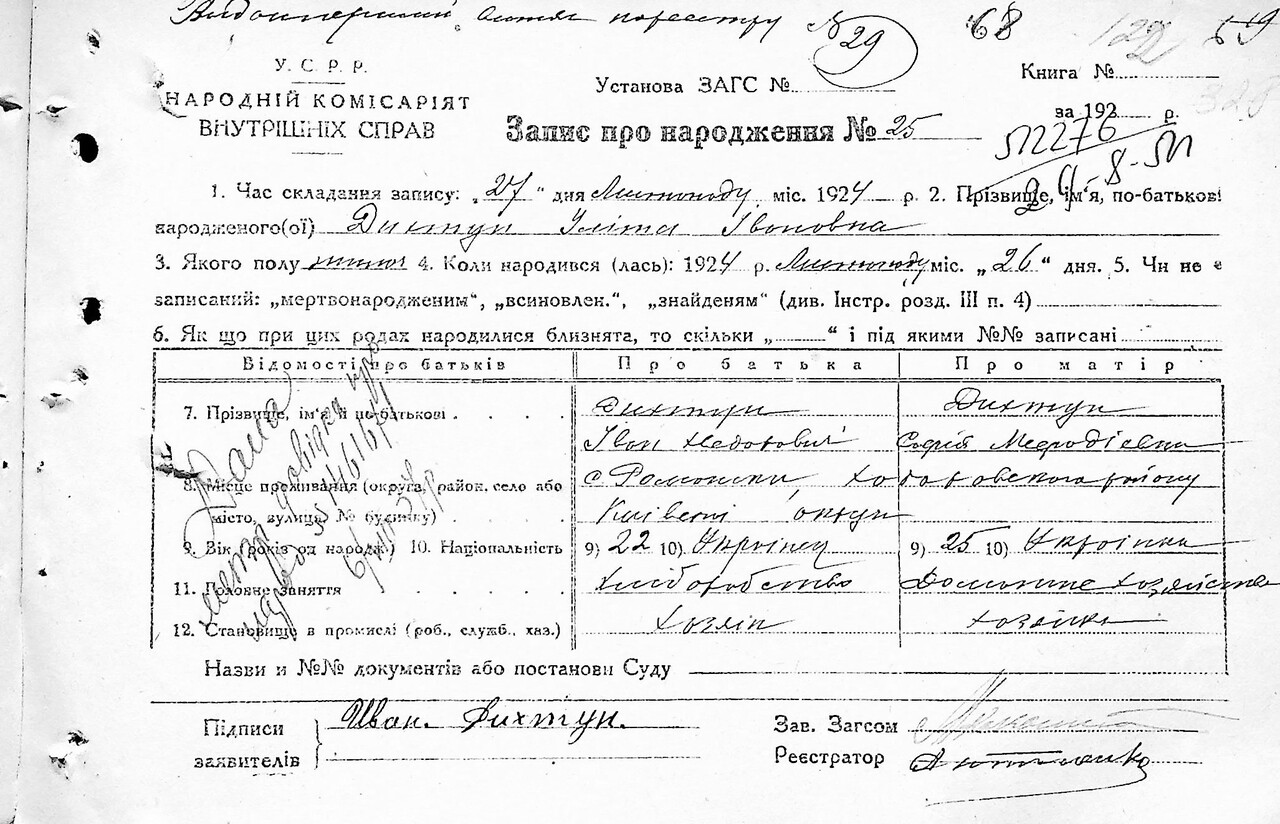 68 59
29
У. С. Р. Р.
НАРОДНІЙ КОМІСАРІЯТ
ВНУТРІШНІХ СПРАВ
Установа ЗАГС №
Книга №
за 192 р.
Запис про народження № 25
1. Час складання запису: „27" дня Листопаду міс. 1924 р. 2. Прізвище, ім'я, по-батькові
народженого(ої) Дихтун Уліта Івановна
3. Якого полу 4. Коли народився (лась): 1924 р. Листопаду міс. „26" дня. 5. Чи не є
записаний: „мертвонародженим", „всиновлен.", „знайденям" (див. Інстр. розд. III п. 4)
6. Як що при цих родах народилися близнята, то скільки „ " і під якими №№ записані
Відомості про батьків Про батька Про матір
7. Прізвище, ім'я й по-батькові Дихтун Дихтун
Іван Софія Мефодієвна
8. Місце проживання (округа, район, село або с. Ромашки, району
місто, вулиця, № будинку) округи
9. Вік (років од народж.) 10. Національність 9) 22 10) Українец 9) 25 10) Українка
11. Головне заняття хліборобство Домашне хозяйство
12. Становище в промислі (роб., служб., хаз.) хозяін хозяйка
Назви и №№ документів або постанови Суду
Підписи
заявителів
Иван. Дихтун.
Зав. Загсом
Реєстратор